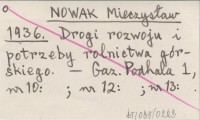 NOWAK Mieczysław
1936. Drogi rozwoju i
potrzeby rolnictwa gór-
skiego. — Gaz. Podhala 1,
nr 10: ; nr 12: ; nr 13: .